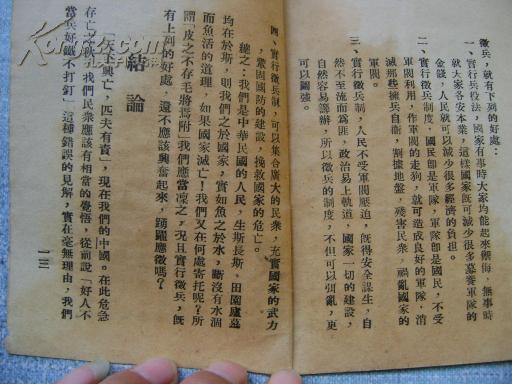 徵兵，就有下列的好處：
一、實行兵役法，國家有事時大家均能起來禦侮，無事時
就大家各安本業，這樣國家旣可減少很多募養軍隊的
金錢，人民就可以減少很多經濟的負担。
二、實行徵兵制度，國民卽是軍隊，軍隊卽是國民，不受
軍閥利用，作軍閥的走狗，就可造成良好的軍隊，消
滅那些擁兵自衞，割據地盤，殘害民衆，禍亂國家的
軍閥。
三、實行徵兵制，人民不受軍閥壓迫，旣得安全謀生，自
然不至流而爲匪，政治易上軌道，國家一切的建設，
自然容易籌辦，所以徵兵的制度，不但可以弭亂，更
可以圖強。
四、實行徵兵制，可以集合廣大的民衆，充實國家的武力
，鞏固國防的建設，挽救國家的危亡。
總之：我們是中華民國的人民，生斯長斯，田園廬墓
均在於斯，則我們之於國家，實如魚之於水，斷沒有水涸
而魚活的道理，如果國家滅亡！我們又在何處寄托呢？所
謂「皮之不存毛將焉附」我們應當凜之，况且實行徵兵，旣
有上列的好處，還不應該興奮起來，踴躍應徵嗎？
結論
「天下興亡，匹夫有責」，現在我們的中國。在此危急
存亡之秋，我們民衆應該有相當的覺悟，從前說「好人不
當兵好鐵不打釘」這種錯誤的見解，實在毫無理由，我們
一三